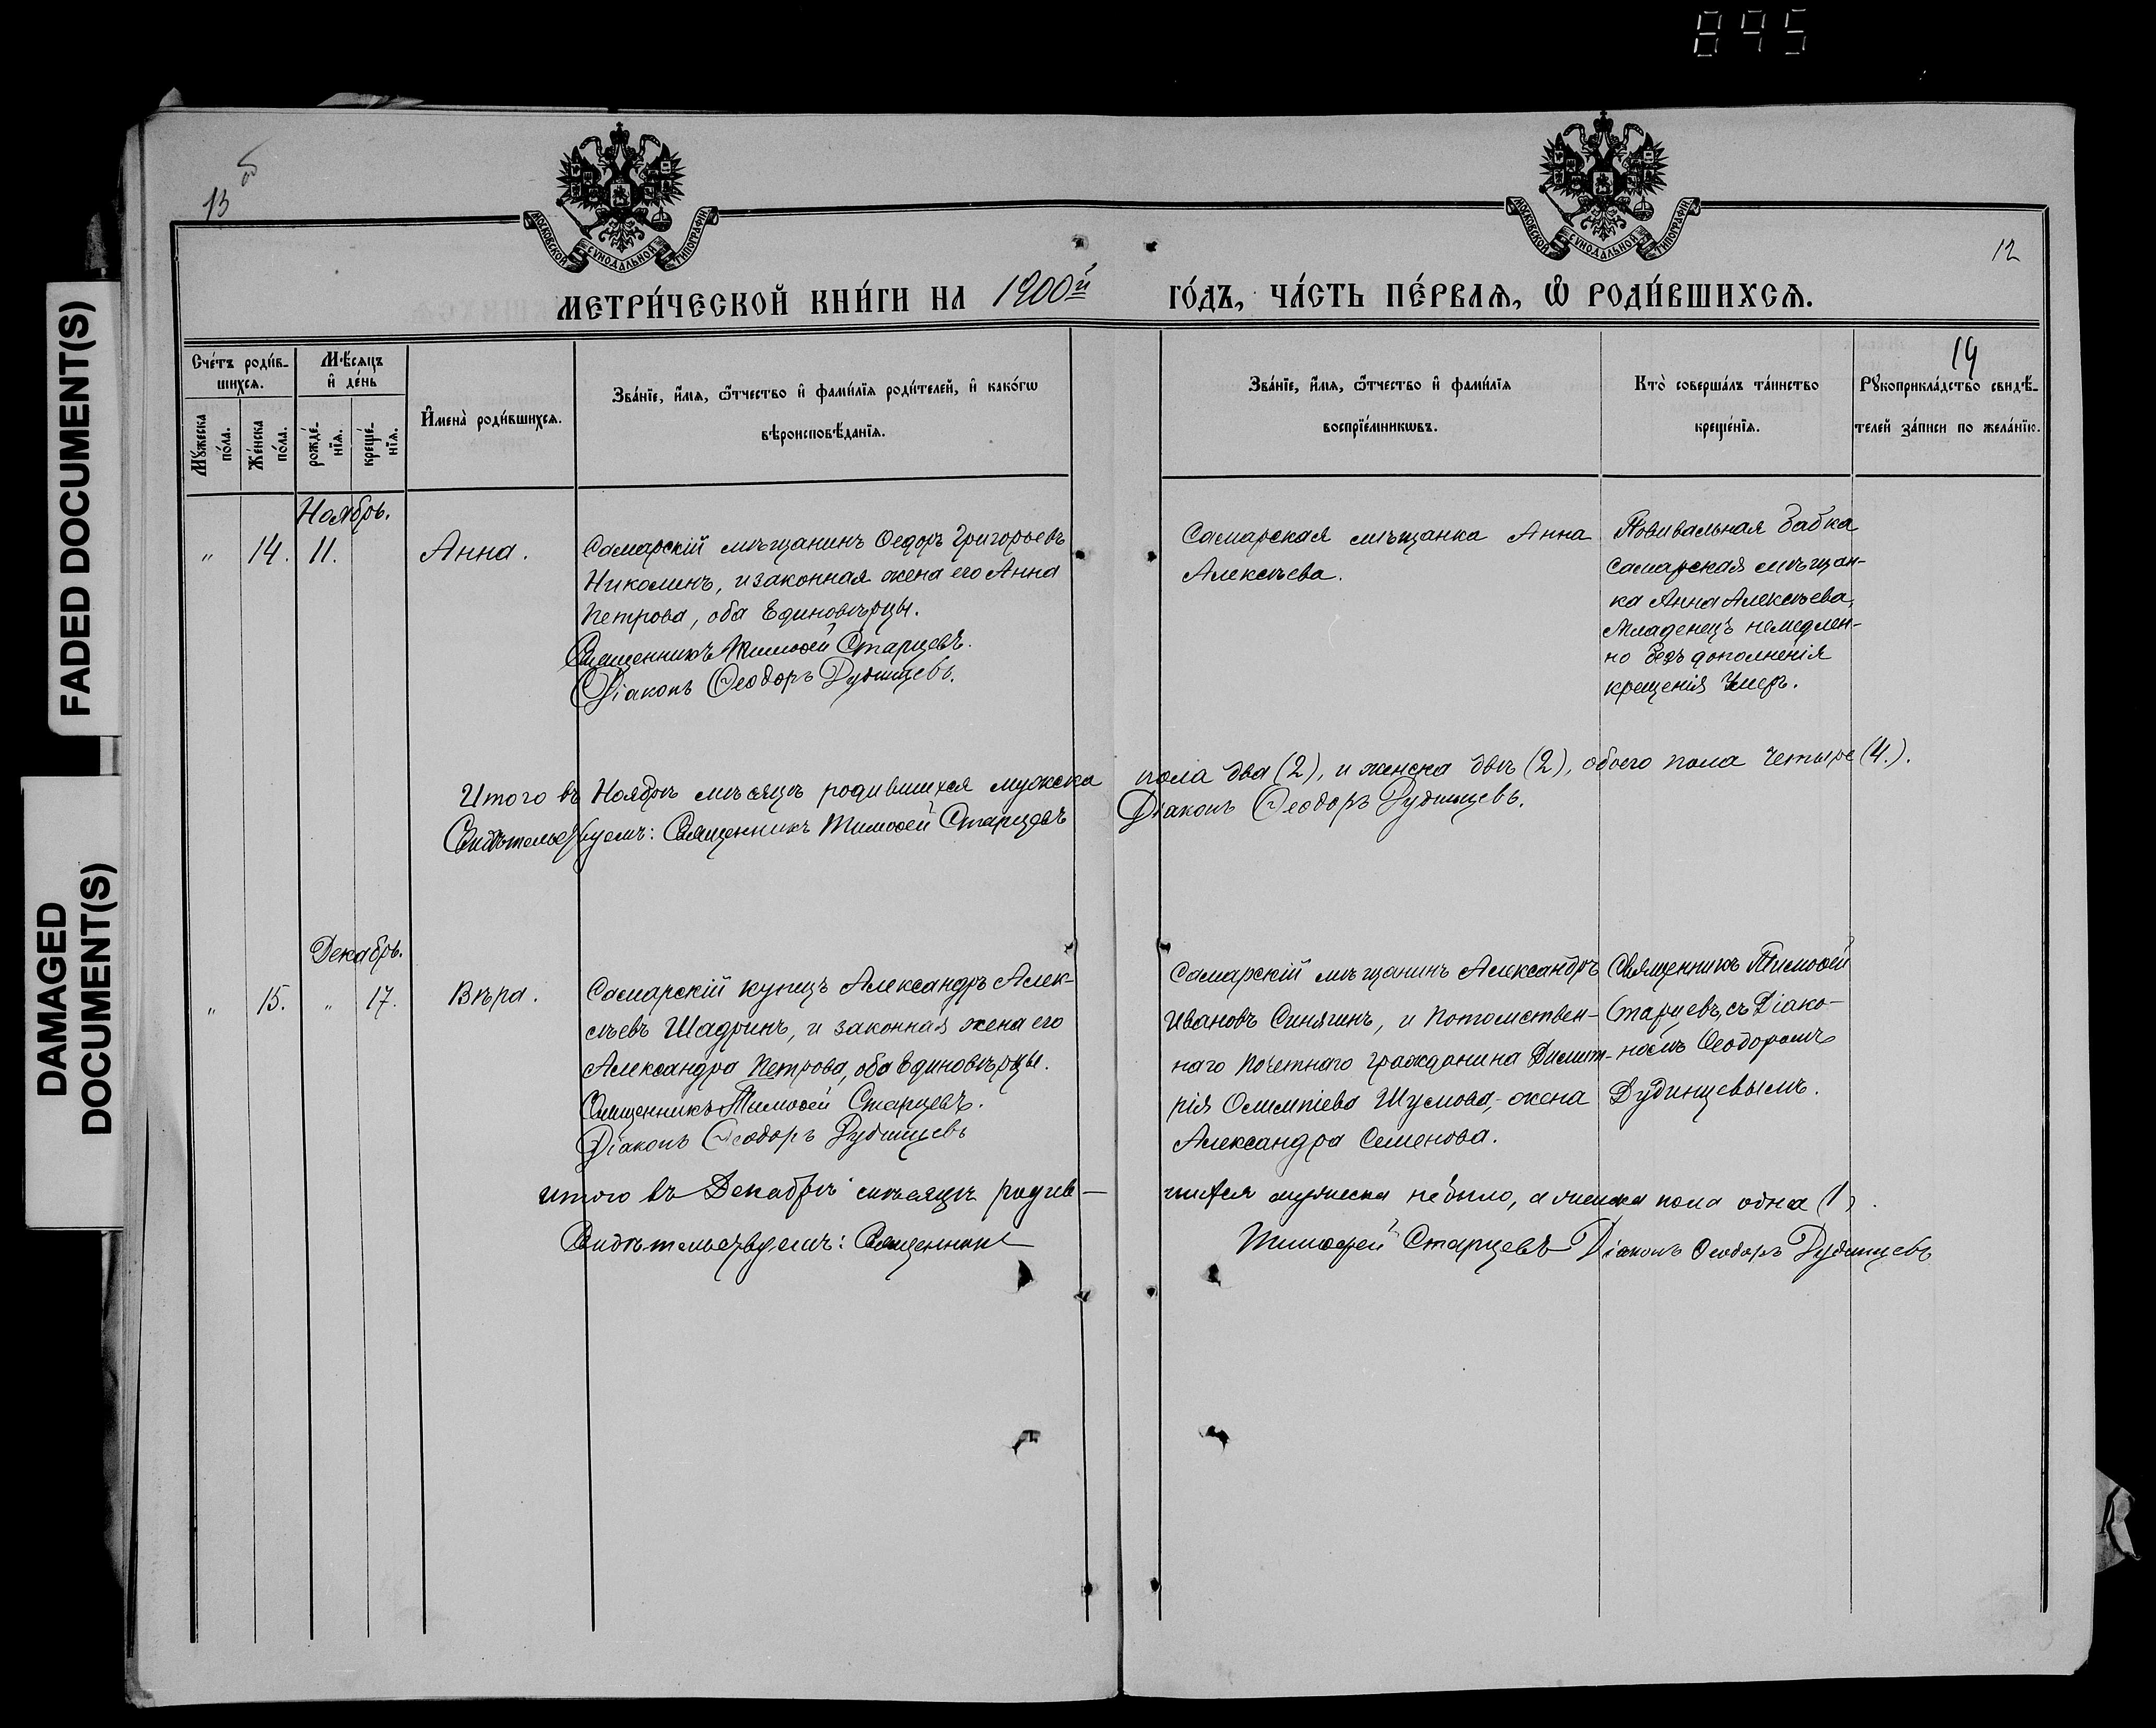 895
FADED DOCUMENT(S)
DAMAGED
DOCUMENT(S)
13 об
12
МОСКОВСКОЙ СѴНОДАЛЬНОЙ ТИПОГРАФІИ
МОСКОВСКОЙ СѴНОДАЛЬНОЙ ТИПОГРАФІИ
МЕТРИ́ЧЕСКОЙ КНИ́ГИ НА 1900й ГО́ДЪ, ЧА́СТЬ ПЕ́РВАѦ, Ѽ РОДИ́ВШИХСѦ.
Сче́тъ роди́в-
шихсѧ.
Мѣ́сѧцъ
и҆ де́нь
Мꙋ́жеска
по́ла.
Же́нска
по́ла.
рожде́-
нїѧ.
креще́-
нїѧ.
И҆мена̀ роди́вшихсѧ.
Зва́нїе, и҆́мѧ, ѻ҆́тчество и҆ фами́лїѧ роди́телей, и҆ како́гѡ
вѣроисповѣ́данїѧ.
Зва́нїе, и҆́мѧ, ѻ҆́тчество и҆ фами́лїѧ
воспрїе́мникѡвъ.
Кто̀ соверша́лъ та́инство
креще́нїѧ.
19
Рꙋкоприкла́дство свидѣ́-
телей за́писи по жела́нїю.
Ноябрь.
" 14. 11. Анна.
Самарскій мѣщанинъ Ѳедоръ Григорьевъ
Николинъ, и законная жена его Анна
Петрова, оба Единовѣрцы.
Священникъ Тимоѳей Старцевъ.
Діаконъ Ѳеодоръ Дудинцевъ.
Самарская мѣщанка Анна
Алексѣева.
Повивальная бабка
Самарская мѣщан-
ка Анна Алексѣева,
Младенецъ немедлен-
но безъ дополненія
крещенія умеръ.
Итого въ Ноябрѣ мѣсяцѣ родившихся мужска пола два (2), и женска двѣ (2), обоего пола четыре (4.).
Свидѣтельствуемъ: Священникъ Тимоѳей Старцевъ Діаконъ Ѳеодоръ Дудинцевъ.
Декабрь.
" 15. " 17. Вѣра.
Самарскій купецъ Александръ Алек-
сѣевъ Шадринъ, и законная жена его
Александра Петрова, оба Единовѣрцы.
Священникъ Тимоѳей Старцевъ.
Діаконъ Ѳеодоръ Дудинцевъ
Самарскій мѣщанинъ Александръ
Ивановъ Синягинъ, и Потомствен-
наго Почетнаго гражданина Димит-
рія Олимпіева Шумова, жена
Александра Семенова.
Священникъ Тимоѳей
Старцевъ, съ Діако-
номъ Ѳеодоромъ
Дудинцевымъ.
Итого въ Декабрѣ мѣсяцѣ родив-шихся мужска не было, а женска пола одна (1).
Свидѣтельствуемъ: Священникъ Тимоѳей Старцевъ Діаконъ Ѳеодоръ Дудинцевъ